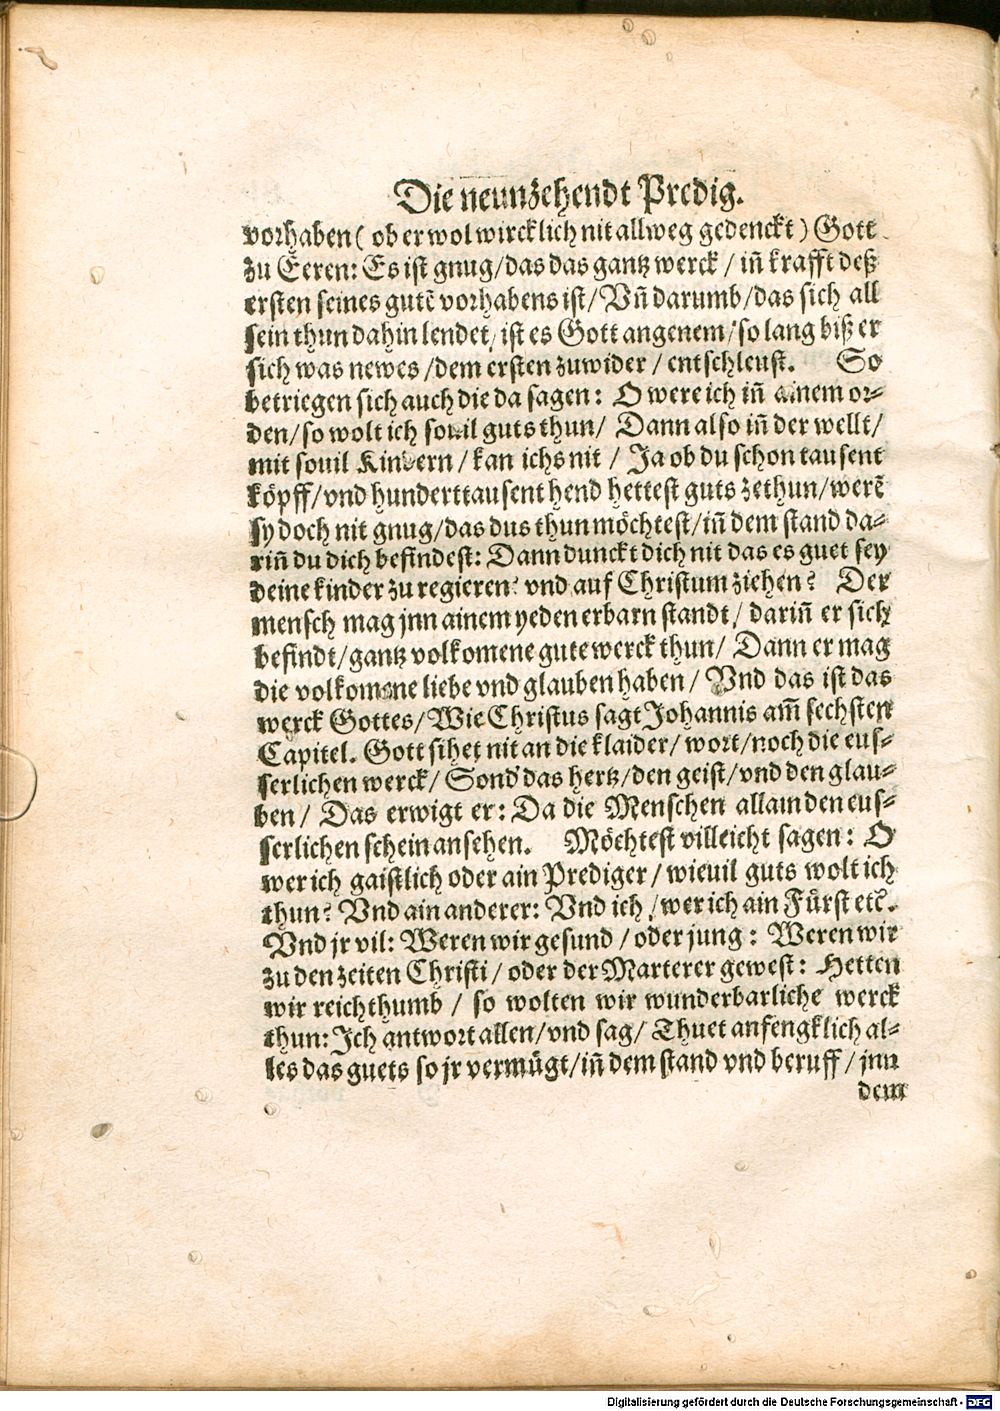 Die neunzehendt Predig.
vorhaben ( ob er wol wircklich nit allweg gedenckt ) Gott
zu Eeren: Es ist gnug/das das gantz werck / iñ krafft deß
ersten seines gutẽ vorhabens ist/ Vñ darumb/das sich all
sein thun dahin lendet, ist es Gott angenem/so lang biß er
sich was newes /dem ersten zuwider / entschleust. So
betriegen sich auch die da sagen: O were ich iñ ainem or⸗
den/so wolt ich souil guts thun/ Dann also iñ der wellt/
mit souil Kindern / kan ichs nit / Ja ob du schon tausent
köpff/vnd hunderttausent hend hettest guts zethun/werẽ
sy doch nit gnug/das dus thun möchtest/iñ dem stand da⸗
riñ du dich befindest: Dann dunckt dich nit das es guet sey
deine kinder zu regieren? vnd auf Christum ziehen? Der
mensch mag jnn ainem yeden erbarn standt / dariñ er sich
befindt/gantz volkomene gute werck thun/ Dann er mag
die volkomene liebe vnd glauben haben / Vnd das ist das
werck Gottes/ Wie Christus sagt Johannis am̃ sechsten
Capitel. Gott sihet nit an die klaider/ wort/noch die eus⸗
serlichen werck/ Sond' das hertz/den geist/vnd den glau⸗
ben / Das erwigt er: Da die Menschen allain den eus⸗
serlichen schein ansehen. Möchtest villeicht sagen: O
wer ich gaistlich oder ain Prediger / wieuil guts wolt ich
thun? Vnd ain anderer: Vnd ich / wer ich ain Fürst etc̃.
Vnd jr vil: Weren wir gesund / oder jung : Weren wir
zu den zeiten Christi / oder der Marterer gewest: Hetten
wir reichthumb / so wolten wir wunderbarliche werck
thun: Ich antwort allen/vnd sag/ Thuet anfengklich al⸗
les das guets so jr vermügt/iñ dem stand vnd beruff / jnn
dem
Digitalisierung gefördert durch die Deutsche Forschungsgemeinschaft - DFG